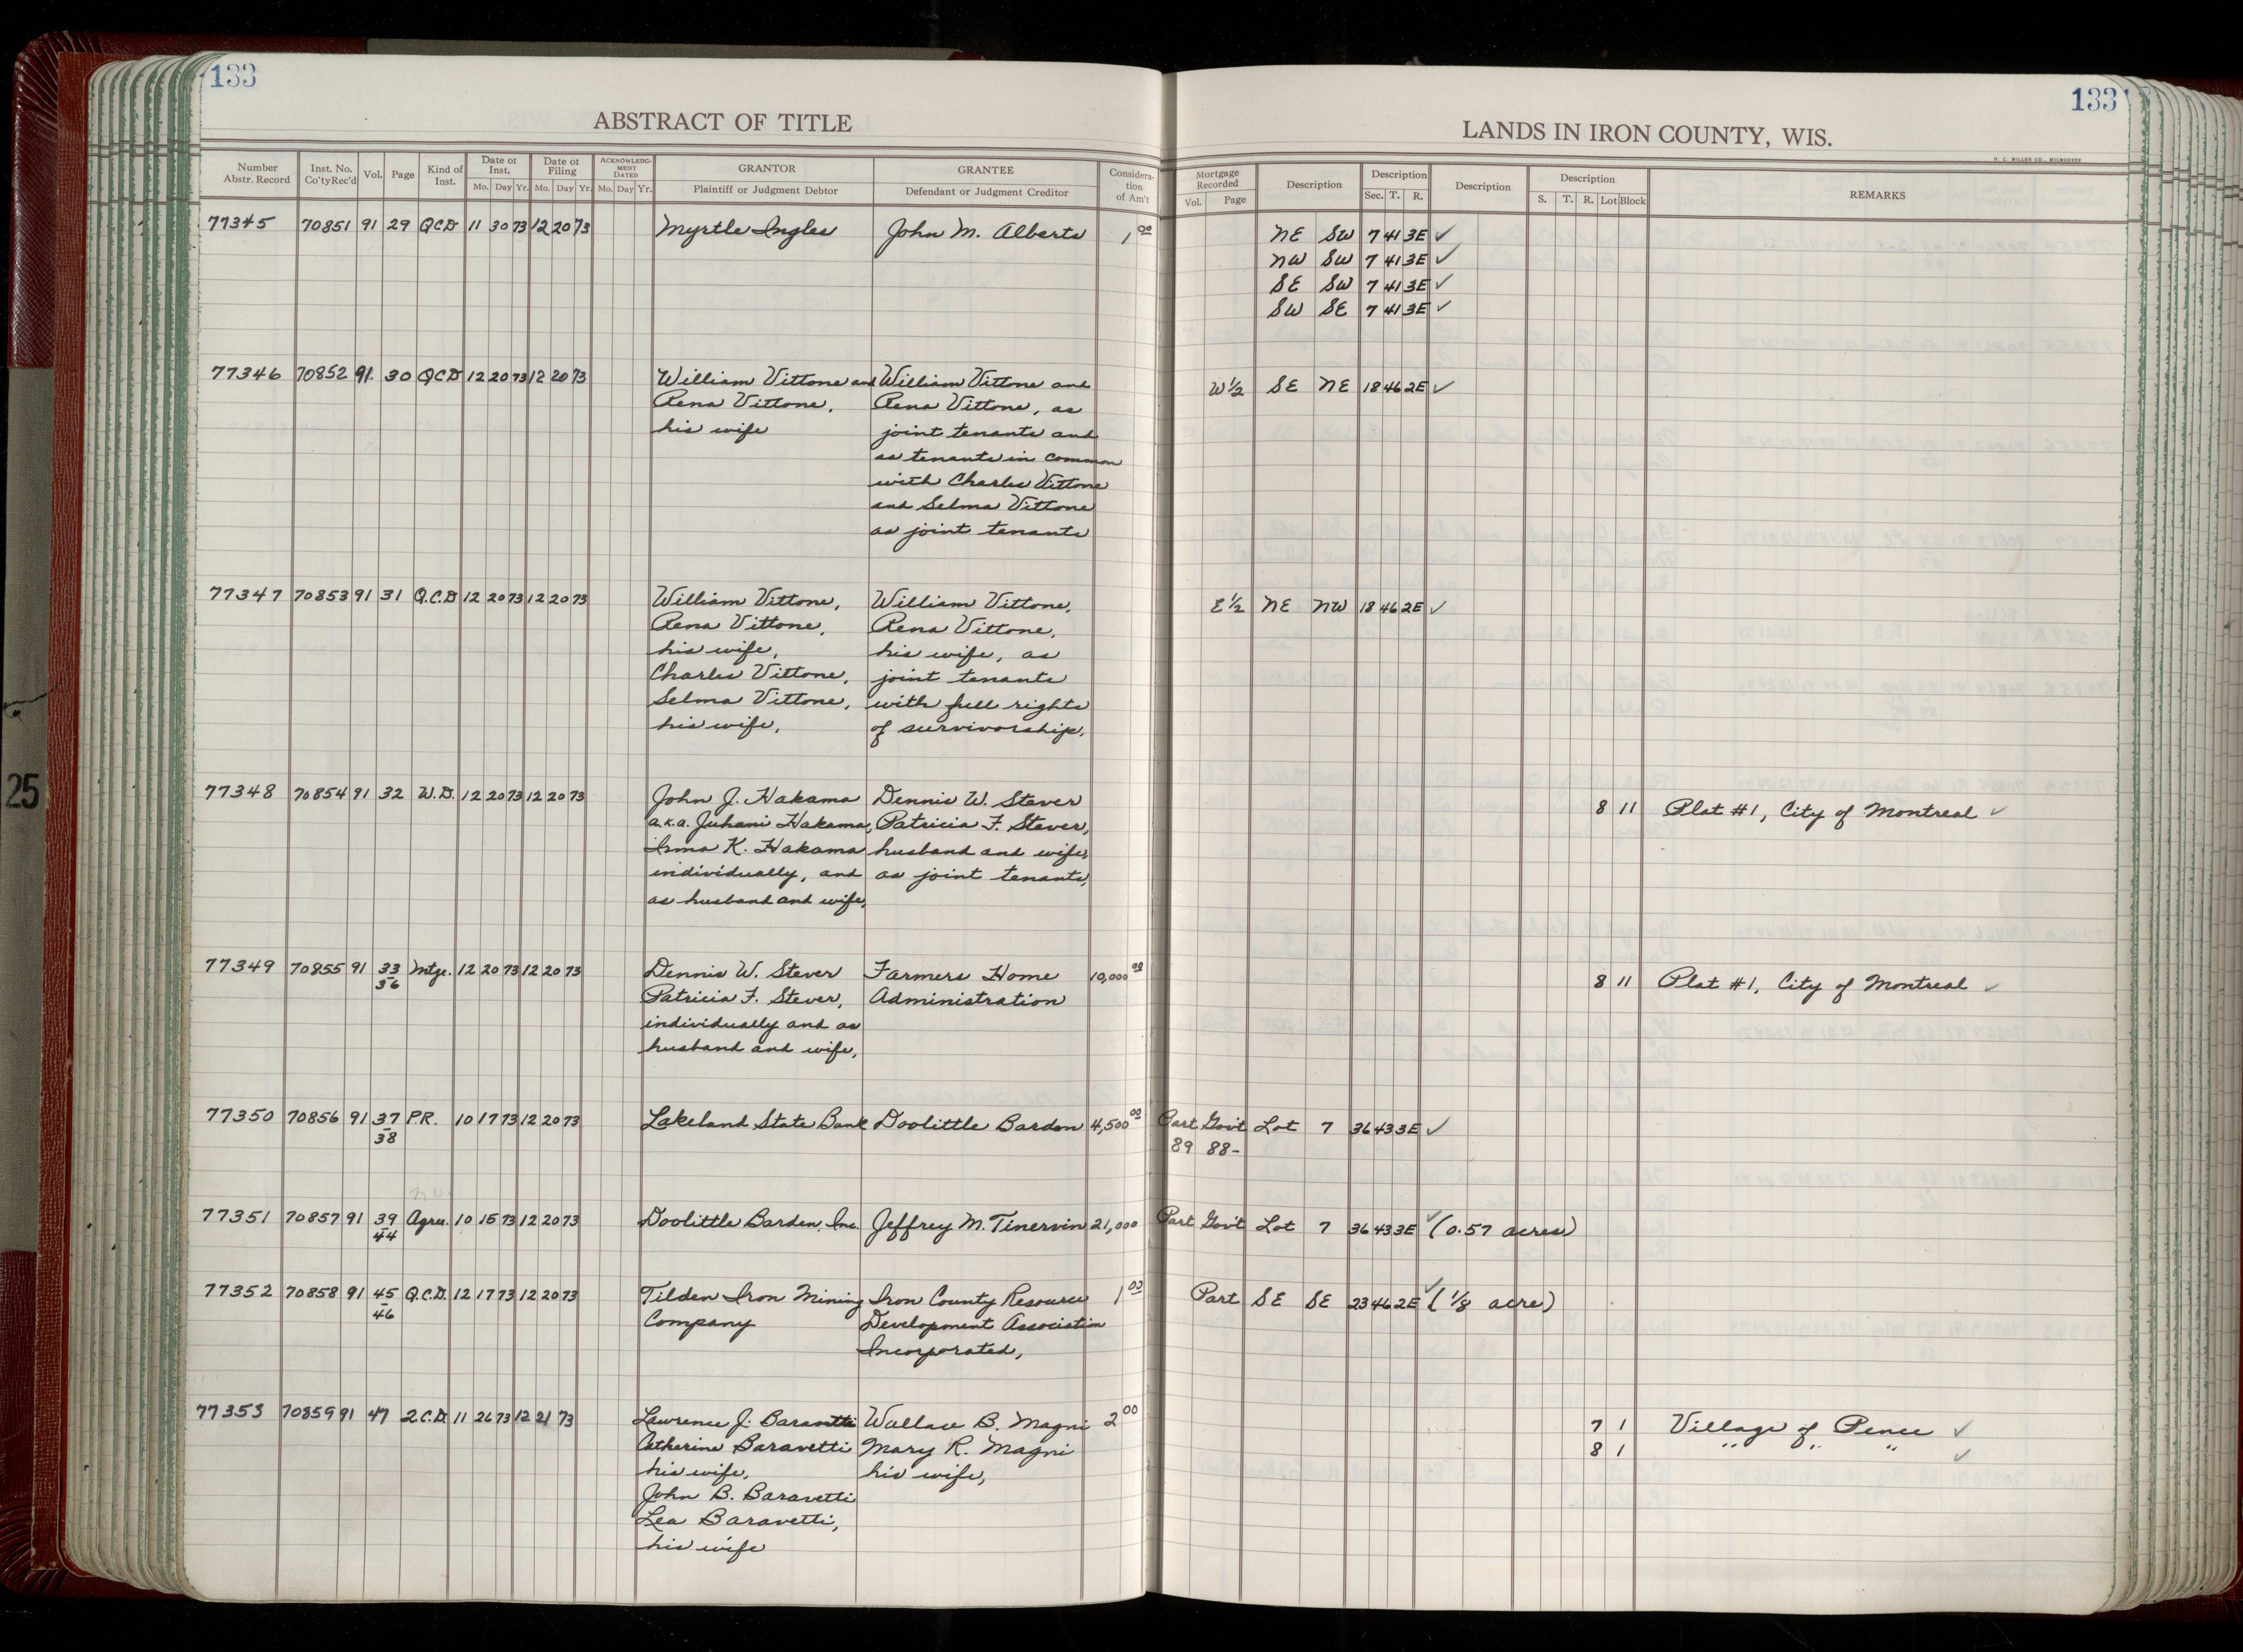 133
133
ABSTRACT OF TITLE
LANDS IN IRON COUNTY, WIS.
H. C. MILLER CO., MILWAUKEE
Number Abstr. Record Inst. No. Co'ty Rec'd Vol. Page Kind of Inst. Date of Inst. Mo. Day Yr. Date of Filing Mo. Day Yr. ACKNOWLEDG-MENT DATED Mo. Day Yr. GRANTOR Plaintiff or Judgment Debtor GRANTEE Defendant or Judgment Creditor Considera-tion of Am't Mortgage Recorded Vol. Page Description Description Sec. T. R. Description Description S. T. R. Lot Block REMARKS
77345 70851 91 29 QCD 11 30 73 12 20 73 Myrtle Ingles John M. Alberts 1 00 NE SW 7 41 3E ✓
NW SW 7 41 3E ✓
SE SW 7 41 3E ✓
SW SE 7 41 3E ✓
77346 70852 91. 30 QCD 12 20 73 12 20 73 William Vittone and William Vittone and W 1/2 SE NE 18 46 2E ✓
Rena Vittone, Rena Vittone, as
his wife joint tenants and
as tenants in common
with Charles Vittone
and Selma Vittone
as joint tenants
77347 70853 91 31 Q.C.D 12 20 73 12 20 73 William Vittone, William Vittone, E 1/2 NE NW 18 46 2E ✓
Rena Vittone, Rena Vittone,
his wife, his wife, as
Charles Vittone, joint tenants
Selma Vittone, with full rights
his wife, of survivorship,
77348 70854 91 32 W.D. 12 20 73 12 20 73 John J. Hakama Dennis W. Stever 8 11 Plat #1, City of Montreal ✓
a.k.a. Juhani Hakama, Patricia F. Stever,
Irma K. Hakama husband and wife,
individually, and as joint tenants,
as husband and wife,
77349 70855 91 33 36 Mtge. 12 20 73 12 20 73 Dennis W. Stever Farmers Home 10,000 00 8 11 Plat #1, City of Montreal ✓
Patricia F. Stever, Administration
individually and as
husband and wife,
77350 70856 91 37 38 P.R. 10 17 73 12 20 73 Lakeland State Bank Doolittle Bardon 4,500 00 Part Gov't Lot 7 36 43 3E ✓
89 88-
77351 70857 91 39 44 Agree. 10 15 73 12 20 73 Doolittle Barden, Inc. Jeffrey M. Tinervin 21,000 Part Gov't Lot 7 36 43 3E ✓ (0.57 acres)
77352 70858 91 45 46 Q.C.D. 12 17 73 12 20 73 Tilden Iron Mining Iron County Resource 1 00 Part SE SE 23 46 2E ✓ (1/8 acre)
Company Development Association
Incorporated,
77353 70859 91 47 2.C.D. 11 26 73 12 21 73 Lawrence J. Baravetti Wallace B. Magni 2 00 7 1 Village of Pence ✓
Catherine Baravetti Mary R. Magni 8 1 " " " ✓
his wife, his wife,
John B. Baravetti
Lea Baravetti,
his wife
25